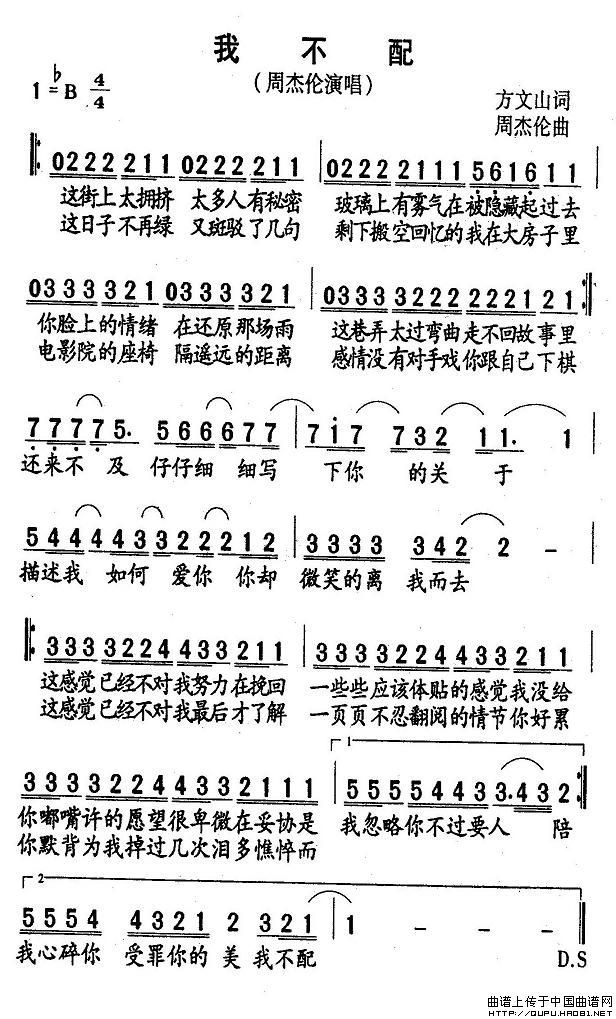 我不配
(周杰伦演唱)
1=♭B 4/4
方文山词
周杰伦曲
0222211 0222211 02222111561611
这街上太拥挤 太多人有秘密 玻璃上有雾气在被隐藏起过去
这日子不再绿 又斑驳了几句 剩下搬空回忆的我在大房子里
0333321 0333321 03333222222121
你脸上的情绪 在还原那场雨 这巷弄太过弯曲走不回故事里
电影院的座椅 隔遥远的距离 感情没有对手戏你跟自己下棋
77775. 566677 717 732 11. 1
还来不及仔仔细细写下你的关于
544443322212 3333 342 2 -
描述我如何爱你你却微笑的离我而去
333322443321​1 333322443321​1
这感觉已经不对我努力在挽回 一些些应该体贴的感觉我没给
这感觉已经不对我最后才了解 一页页不忍翻阅的情节你好累
1
33332244332111 555554433.432
你嘟嘴许的愿望很卑微在妥协是 我忽略你不过要人陪
你默背为我掉过几次泪多憔悴而
2
5554 4321 2 321 1 -
我心碎你 受罪你的美 我不配 D.S
曲谱上传于中国曲谱网
HTTP://QUPU.HAO81.NET